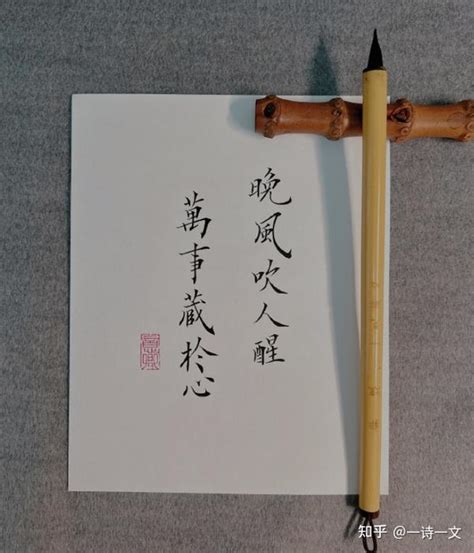 晚風吹人醒
萬事藏於心
知乎 @一诗一文